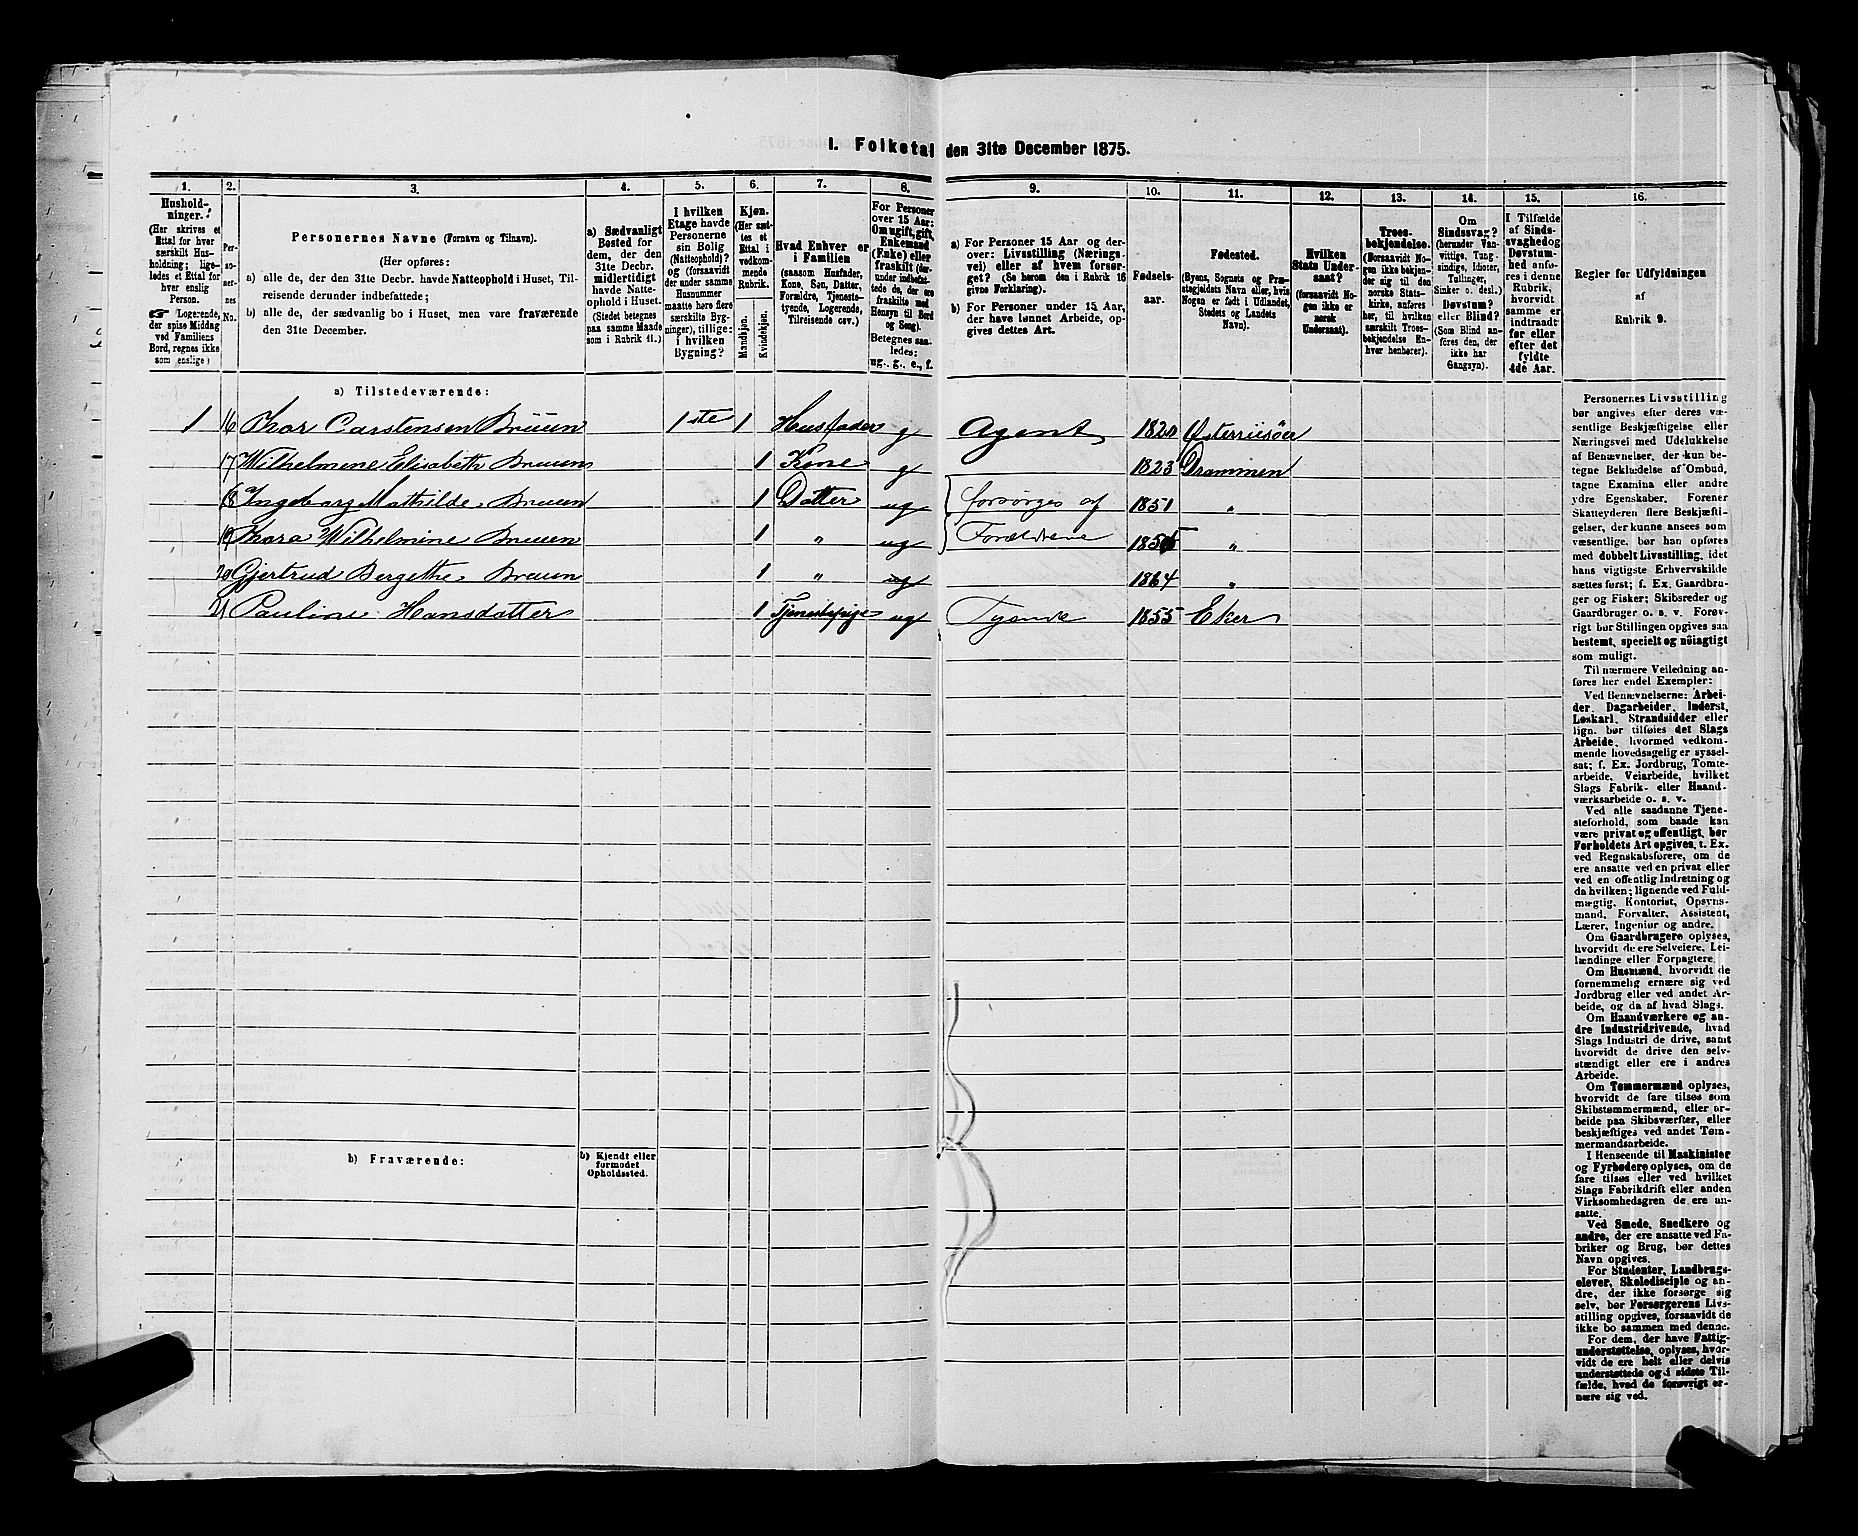 I. Folketal den 31te December 1875.
1. 2. 3. 4. 5. 6. 7. 8. 9. 10. 11. 12. 13. 14. 15. 16.
Hushold-
ninger.
(Her skrives et
Ettal for hver
særskilt Hus-
holdning; lige-
ledes et Ettal for
hver enslig
Person.
☛ Logerende,
der spise Middag
ved Familiens
Bord, regnes ikke
som enslige)
Per-
so-
ner-
nes
No.
Personernes Navne (Fornavn og Tilnavn).
(Her opføres:
a) alle de, der den 31te Decbr. havde Natteophold i Huset, Til-
reisende derunder indbefattede;
b) alle de, der sædvanlig bo i Huset, men vare fraværende
den 31te December.
a) Sædvanligt
Bosted for
dem, der den
31te Decbr.
midlertidigt
havde Natte-
ophold i Huset.
(Stedet betegnes
paa samme Maade
som i Rubrik 11.)
I hvilken
Etage havde
Personerne
sin Bolig
(Natteophold)?
og (forsaavidt
der under samme
Husnummer
maatte høre flere
særskilte Byg-
ninger), tillige:
i hvilken
Bygning?
Kjøn.
(Her sæt-
tes et
Ettal i
vedkom-
mende
Rubrik.
Mandkjøn.
Kvindekjøn.
Hvad Enhver er
i Familien
(saasom Husfader,
Kone, Søn, Datter,
Forældre, Tjeneste-
tyende, Logerende,
Tilreisende osv.)
For Personer
over 15 Aar:
Om ugift, gift,
Enkemand
(Enke) eller
fraskilt (der-
under indbefat-
tede de, der ere
fraskilte med
Hensyn til Bord
og Seng).
Betegnes saa-
ledes:
ug., g., e., f.
a) For Personer 15 Aar og der-
over: Livsstilling (Nærings-
vei) eller af hvem forsør-
get? (Se herom den i Rubrik 16
givne Forklaring).
b) For Personer under 15 Aar,
der have lønnet Arbeide, op-
gives dettes Art.
Fødsels-
aar.
Fødested.
(Byens, Sognets og Præ-
stegjeldets Navn eller, hvis
Nogen er født i Udlandet,
Stedets og Landets
Navn).
Hvilken
Stats Under-
saat?
(forsaavidt No-
gen ikke er
norsk
Undersaat).
Troes-
bekjendelse.
(Forsaavidt No-
gen ikke bekjen-
der sig til den
norske Stats-
kirke, anføres
her, til hvilken
særskilt Troes-
bekjendelse En-
hver henhører).
Om
Sindssvag?
(herunder Van-
vittige, Tung-
sindige, Idioter,
Tullinger,
Sinker o. desl.)
Døvstum?
eller Blind?
(Som Blind an-
føres den, der
ikke har
Gangsyn).
I Tilfælde
af Sinds-
svaghed og
Døvstum-
hed anfø-
res i denne
Rubrik,
hvorvidt
samme er
indtraadt
før eller
efter det
fyldte
4de Aar.
Regler før Udfyldningen
af
Rubrik 9.
a) Tilstedeværende:
1 16 Thor Carstensen Brüün 1ste 1 Husfader g Agent 1820 Østerriisøer
17 Wilhelmene Elisabeth Bruun 1 Kone g 1823 Drammen
18 Ingeborg Mathilde Bruun 1 Datter ug forsørges af 1851 "
19 Thora Wilhelmine Bruun 1 " ug Forældrene 1855 "
20 Gjertrud Bergethe Bruun 1 " ug 1864 "
21 Pauline Hansdatter 1 Tjenestepige ug Tyende 1855 Eker
b) Fraværende:
b) Kjendt eller
formodet
Opholdssted.
Personernes Livsstilling
bør angives efter deres væ-
sentlige Beskjæftigelse eller
Næringsvei med Udelukkelse
af Benævnelser, der kun be-
tegne Beklædelse af Ombud,
tagne Examina eller andre
ydre Egenskaber. Forener
Skatteyderen flere Beskjæfti-
gelser, der kunne ansees som
væsentlige, bør han opføres
med dobbelt Livsstilling, idet
hans vigtigste Erhvervskilde
sættes først; f. Ex. Gaardbru-
ger og Fisker; Skibsreder og
Gaardbruger o. s. v. Forøv-
rigt bør Stillingen opgives saa
bestemt, specielt og nøiagtigt
som muligt.
Til nærmere Veiledning an-
føres her endel Exempler:
Ved Benævnelserne: Arbei-
der, Dagarbeider, Inderst,
Løskarl, Strandsidder eller
lign. bør tilføies det Slags
Arbeide, hvormed vedkom-
mende hovedsagelig er syssel-
sat; f. Ex. Jordbrug, Tomte-
arbeide, Veiarbeide, hvilket
Slags Fabrik- eller Haand-
værksarbeide o. s. v.
Ved alle saadanne Tjene-
steforhold, som baade kan
være privat og offentligt, bør
Forholdets Art opgives, t. Ex.
ved Regnskabsførere, om de
ere ansatte ved en privat eller
ved en offentlig Indretning og
da hvilken; lignende ved Fuld-
mægtig, Kontorist, Opsyns-
mand, Forvalter, Assistent,
Lærer, Ingeniør og andre.
Om Gaardbrugere oplyses,
hvorvidt de ere Selveiere, Lei-
lændinge eller Forpagtere.
Om Husmænd, hvorvidt de
fornemmelig ernære sig ved
Jordbrug eller ved andet Ar-
beide, og da af hvad Slags.
Om Haandværkere og an-
dre Industridrivende, hvad
Slags Industri de drive, samt
hvorvidt de drive den selv-
stændigt eller ere i andres
Arbeide.
Om Tømmermænd oplyses,
hvorvidt de fare tilsøs som
Skibstømmermænd, eller ar-
beide paa Skibsværfter, eller
beskjæftiges ved andet Tøm-
mermandsarbeide.
I Henseende til Maskinister
og Fyrbødere oplyses, om de
fare tilsøs eller ved hvilket
Slags Fabrikdrift eller anden
Virksomhedsgren de ere an-
satte.
Ved Smede, Snedkere og
andre, der ere ansatte ved Fa-
briker og Brug, bør dettes
Navn opgives.
For Studenter, Landbrugs-
elever, Skoledisciple og an-
dre, der ikke forsørge sig
selv, bør Forsørgerens Livs-
stilling opgives, forsaavidt de
ikke bo sammen med denne.
For dem, der have Fattig-
understøttelse, oplyses, hvor-
vidt de ere helt eller delvis
understøttede og i sidste Til-
fælde, hvad de forøvrigt er-
nære sig ved.